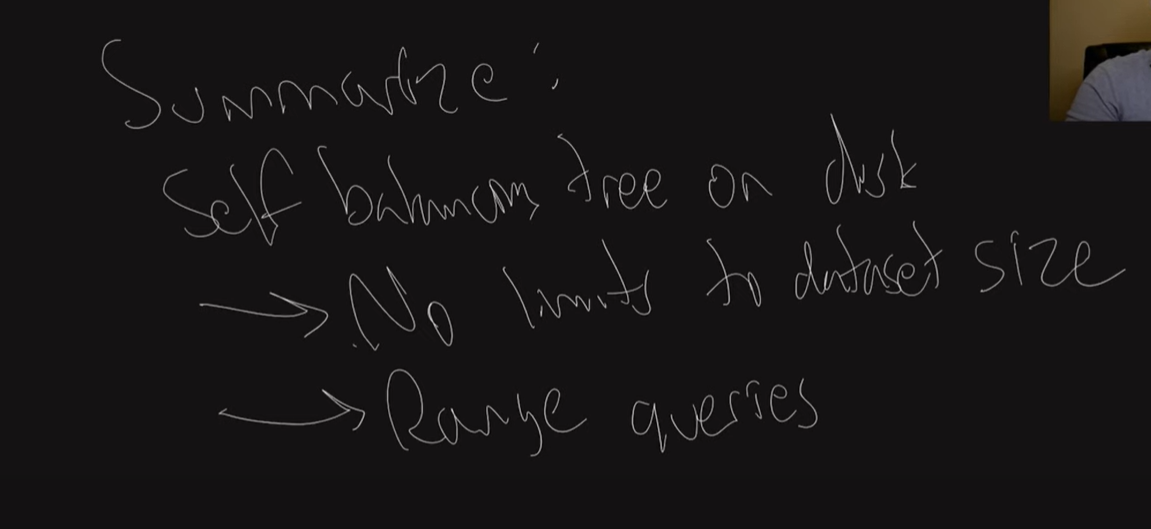 Summarize:
Self balancing tree on disk
→ No limits to dataset size
→ Range queries